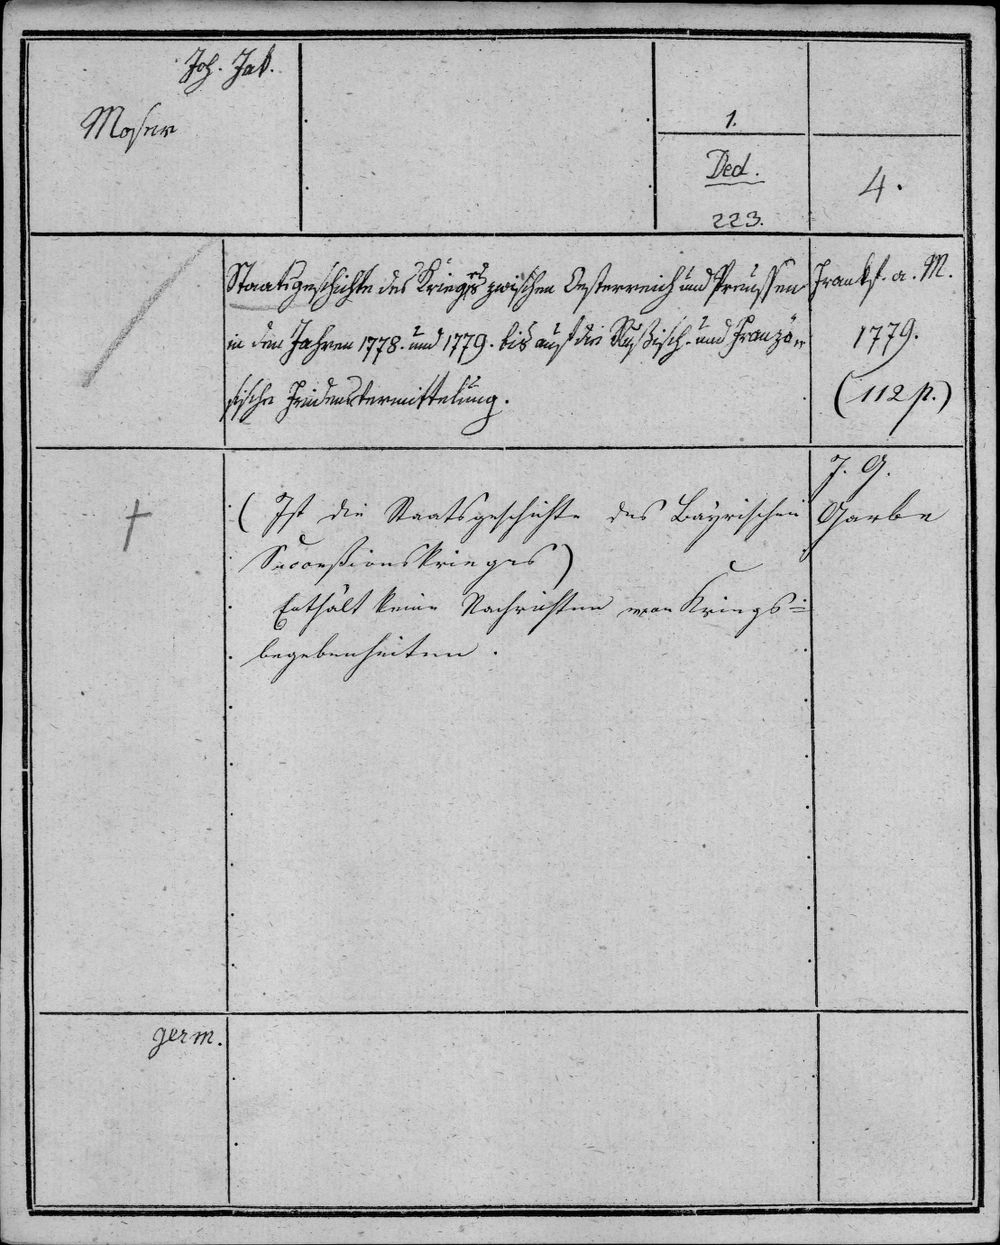 Joh. Jak.
Moser
1.
Ded.
223.
4.
Staatsgeschichte des Krieges zwischen Oesterreich und Preussen
in den Jahren 1778. und 1779. bis auf die Rußisch- und Franzö-
sische Friedensvermittelung.
Frankf. a. M.
1779.
(112 p.)
J. G.
Garbe
†
(Ist die Staatsgeschichte des Bayrischen
Succeßionskrieges)
Enthält keine Nachrichten von Kriegs=
begebenheiten.
germ.